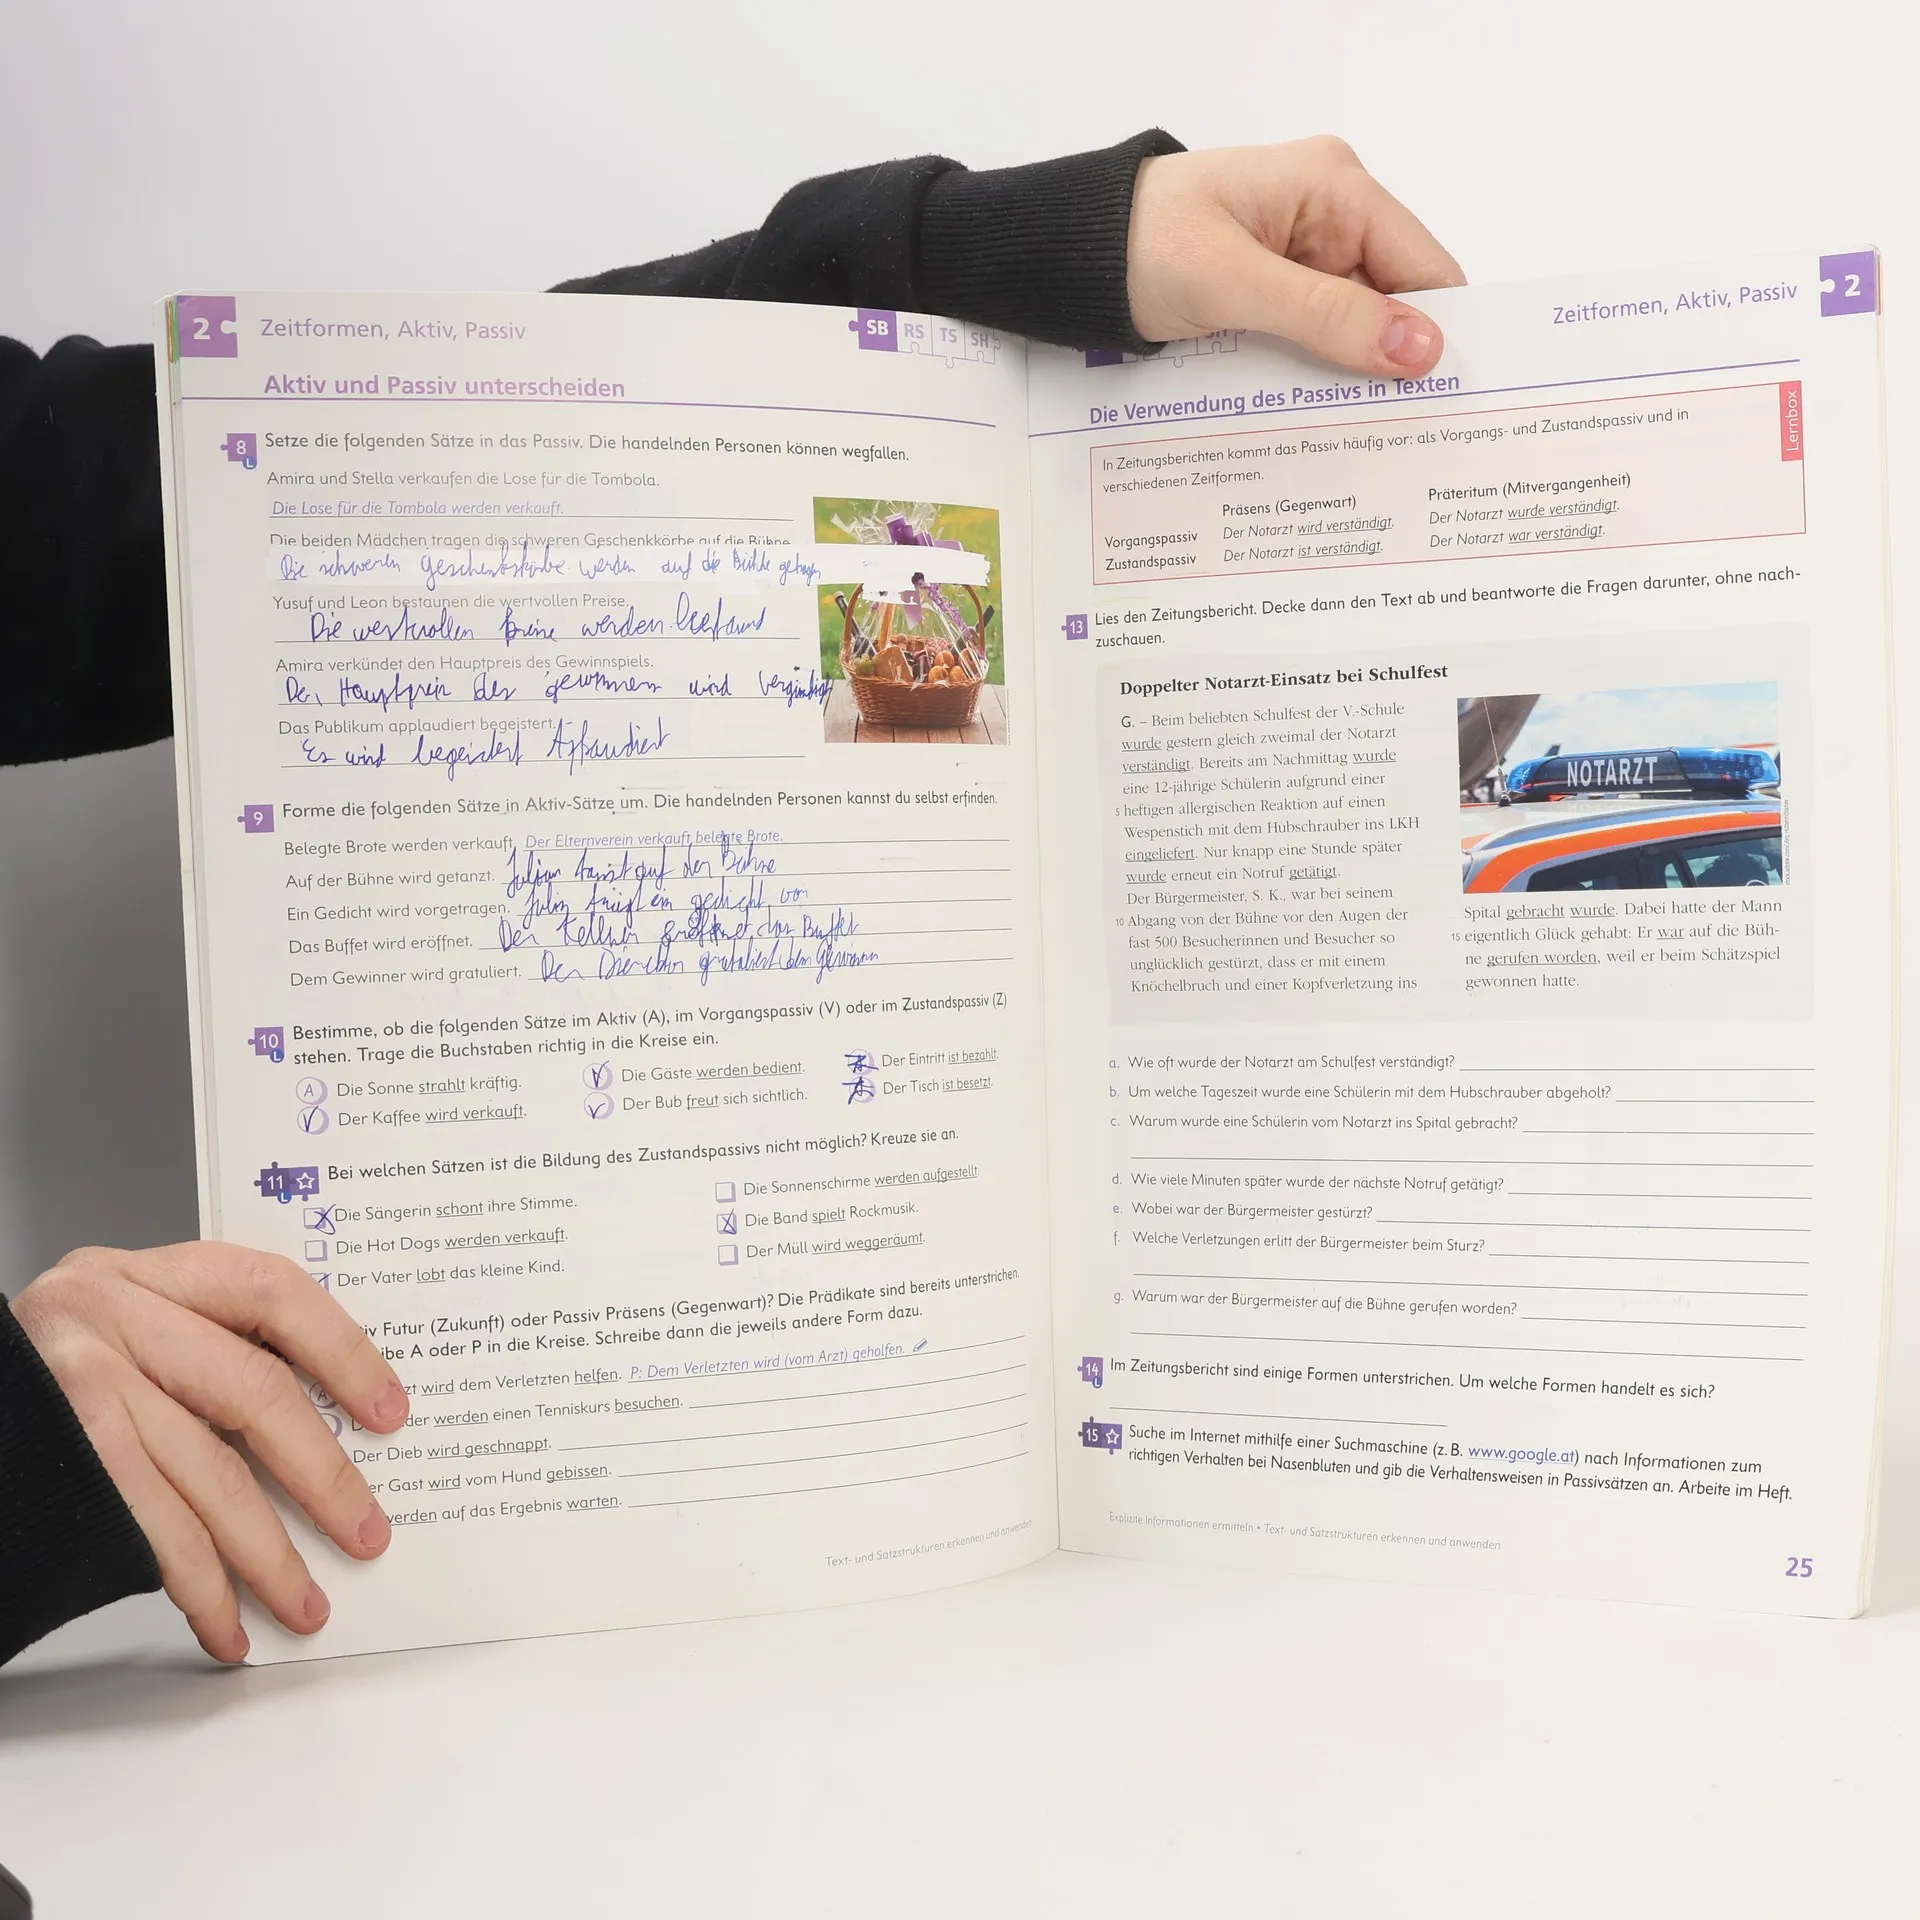 2
Zeitformen, Aktiv, Passiv
SB RS TS SH
Aktiv und Passiv unterscheiden
8 Setze die folgenden Sätze in das Passiv. Die handelnden Personen können wegfallen.
L
Amira und Stella verkaufen die Lose für die Tombola.
Die Lose für die Tombola werden verkauft.
Die beiden Mädchen tragen die schweren Geschenkkörbe auf die Bühne
Die schweren Geschenkskörbe werden auf die Bühne getragen
Yusuf und Leon bestaunen die wertvollen Preise.
Die wertvollen Preise werden
Amira verkündet den Hauptpreis des Gewinnspiels.
Der Hauptpreis des wird
Das Publikum applaudiert begeistert.
Es wird begeistert Applaudiert
9 Forme die folgenden Sätze in Aktiv-Sätze um. Die handelnden Personen kannst du selbst erfinden.
Belegte Brote werden verkauft. Der Elternverein verkauft belegte Brote.
Auf der Bühne wird getanzt. Julian tanzt auf der Bühne
Ein Gedicht wird vorgetragen. ein gedicht vor
Das Buffet wird eröffnet. Der Kellner eröffnet das Buffet
Dem Gewinner wird gratuliert. Der gratuliert dem
10 Bestimme, ob die folgenden Sätze im Aktiv (A), im Vorgangspassiv (V) oder im Zustandspassiv (Z)
L stehen. Trage die Buchstaben richtig in die Kreise ein.
A Die Sonne strahlt kräftig.
V Der Kaffee wird verkauft.
V Die Gäste werden bedient.
V Der Bub freut sich sichtlich.
Der Eintritt ist bezahlt.
Der Tisch ist besetzt.
11 Bei welchen Sätzen ist die Bildung des Zustandspassivs nicht möglich? Kreuze sie an.
L
X Die Sängerin schont ihre Stimme.
Die Hot Dogs werden verkauft.
Der Vater lobt das kleine Kind.
Die Sonnenschirme werden aufgestellt.
X Die Band spielt Rockmusik.
Der Müll wird weggeräumt.
iv Futur (Zukunft) oder Passiv Präsens (Gegenwart)? Die Prädikate sind bereits unterstrichen.
ibe A oder P in die Kreise. Schreibe dann die jeweils andere Form dazu.
A zt wird dem Verletzten helfen. P: Dem Verletzten wird (vom Arzt) geholfen.
der werden einen Tenniskurs besuchen.
Der Dieb wird geschnappt.
er Gast wird vom Hund gebissen.
werden auf das Ergebnis warten.
Text- und Satzstrukturen erkennen und anwenden
Zeitformen, Aktiv, Passiv
2
Die Verwendung des Passivs in Texten
Lernbox
In Zeitungsberichten kommt das Passiv häufig vor: als Vorgangs- und Zustandspassiv und in
verschiedenen Zeitformen.
Präsens (Gegenwart) Präteritum (Mitvergangenheit)
Vorgangspassiv Der Notarzt wird verständigt. Der Notarzt wurde verständigt.
Zustandspassiv Der Notarzt ist verständigt. Der Notarzt war verständigt.
13 Lies den Zeitungsbericht. Decke dann den Text ab und beantworte die Fragen darunter, ohne nach-
zuschauen.
Doppelter Notarzt-Einsatz bei Schulfest
G. – Beim beliebten Schulfest der V.-Schule
wurde gestern gleich zweimal der Notarzt
verständigt. Bereits am Nachmittag wurde
eine 12-jährige Schülerin aufgrund einer
5 heftigen allergischen Reaktion auf einen
Wespenstich mit dem Hubschrauber ins LKH
eingeliefert. Nur knapp eine Stunde später
wurde erneut ein Notruf getätigt.
Der Bürgermeister, S. K., war bei seinem
10 Abgang von der Bühne vor den Augen der
fast 500 Besucherinnen und Besucher so
unglücklich gestürzt, dass er mit einem
Knöchelbruch und einer Kopfverletzung ins
NOTARZT
Spital gebracht wurde. Dabei hatte der Mann
15 eigentlich Glück gehabt: Er war auf die Büh-
ne gerufen worden, weil er beim Schätzspiel
gewonnen hatte.
a. Wie oft wurde der Notarzt am Schulfest verständigt?
b. Um welche Tageszeit wurde eine Schülerin mit dem Hubschrauber abgeholt?
c. Warum wurde eine Schülerin vom Notarzt ins Spital gebracht?
d. Wie viele Minuten später wurde der nächste Notruf getätigt?
e. Wobei war der Bürgermeister gestürzt?
f. Welche Verletzungen erlitt der Bürgermeister beim Sturz?
g. Warum war der Bürgermeister auf die Bühne gerufen worden?
14 Im Zeitungsbericht sind einige Formen unterstrichen. Um welche Formen handelt es sich?
L
15 Suche im Internet mithilfe einer Suchmaschine (z. B. www.google.at) nach Informationen zum
richtigen Verhalten bei Nasenbluten und gib die Verhaltensweisen in Passivsätzen an. Arbeite im Heft.
Explizite Informationen ermitteln • Text- und Satzstrukturen erkennen und anwenden
25